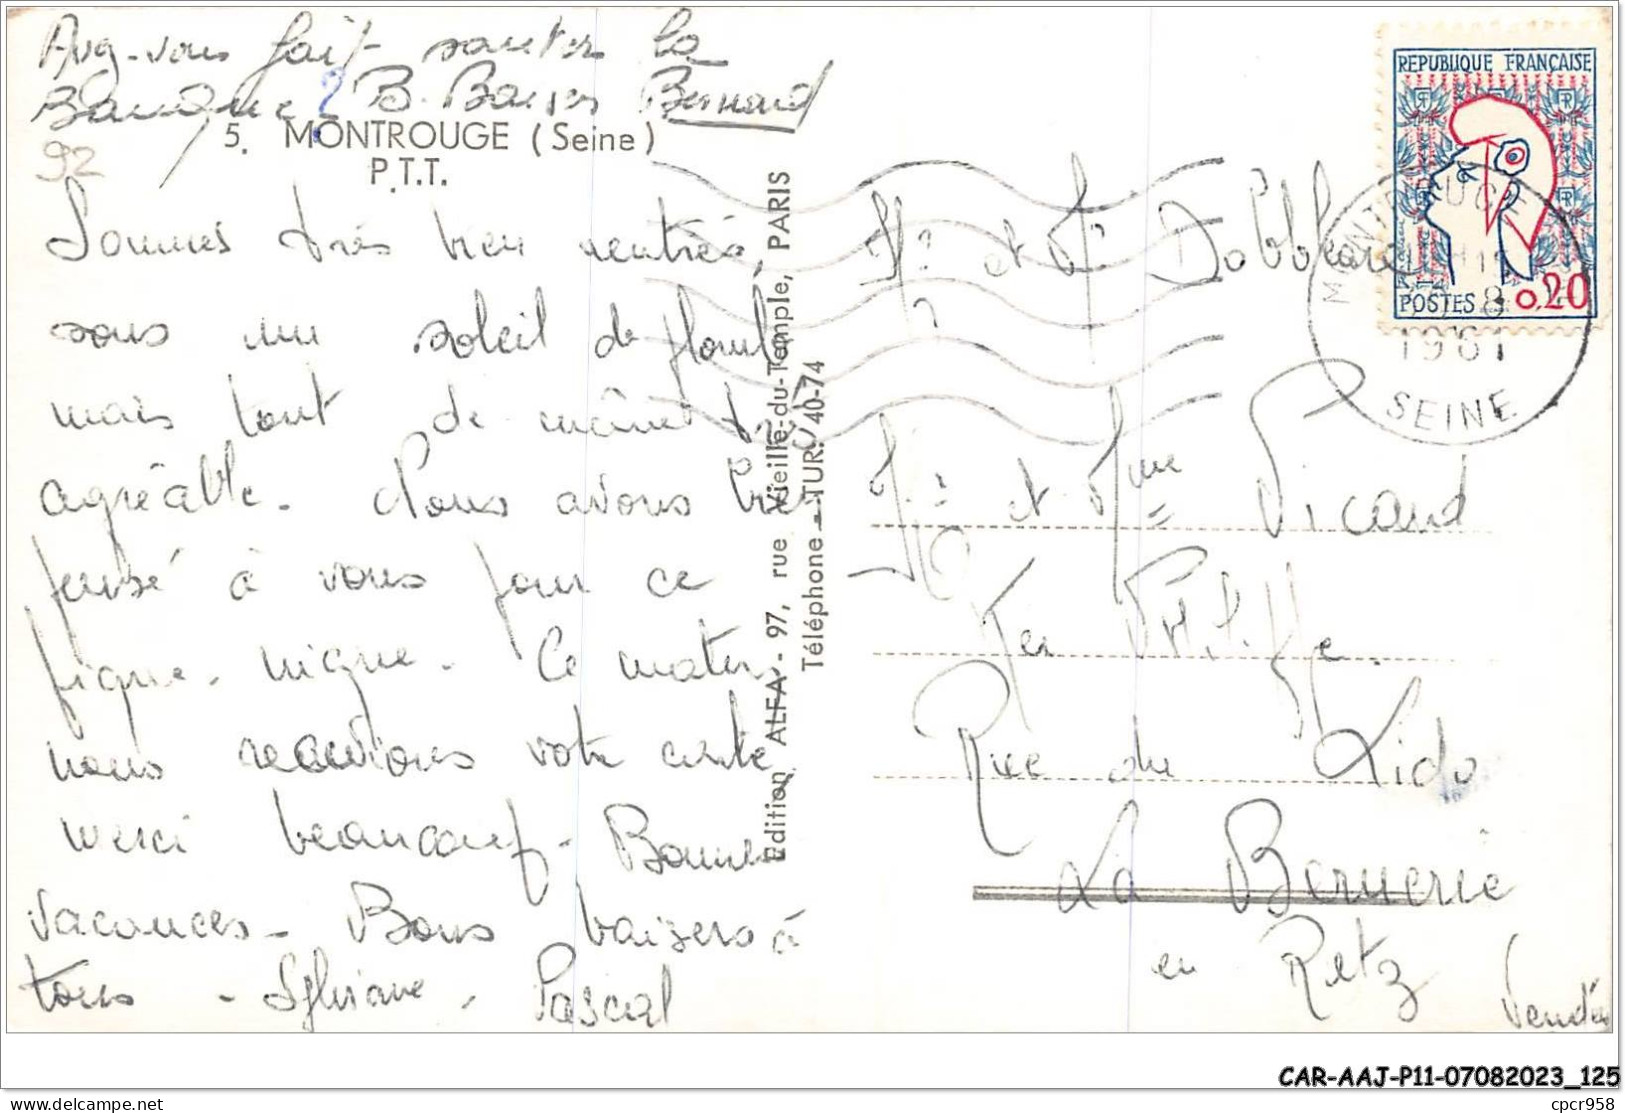 Avez-vous fait sauter la
Banque ? B. Baisers Bernard
5. MONTROUGE (Seine)
92
P.T.T.
Sommes très bien rentrés,
sous un soleil de plomb
mais tout de même très
agréable. Nous avons bien
pensé à vous pour ce
pique-nique. Ce matin
nous recevions votre carte
merci beaucoup. Bonnes
vacances. Bons baisers à
tous - Sylviane, Pascal
Edition ALFA - 97, rue Vieille-du-Temple, PARIS
Téléphone - TUR. 40-74
REPUBLIQUE FRANÇAISE
POSTES 0,20
MONTROUGE
8
1961
SEINE
Mr et Mme
Mr et Mme Picaud
Ker
Rue du Lido
La Bernerie
en Retz
Vendée
CAR-AAJ-P11-07082023_125
delcampe.net
cpcr958